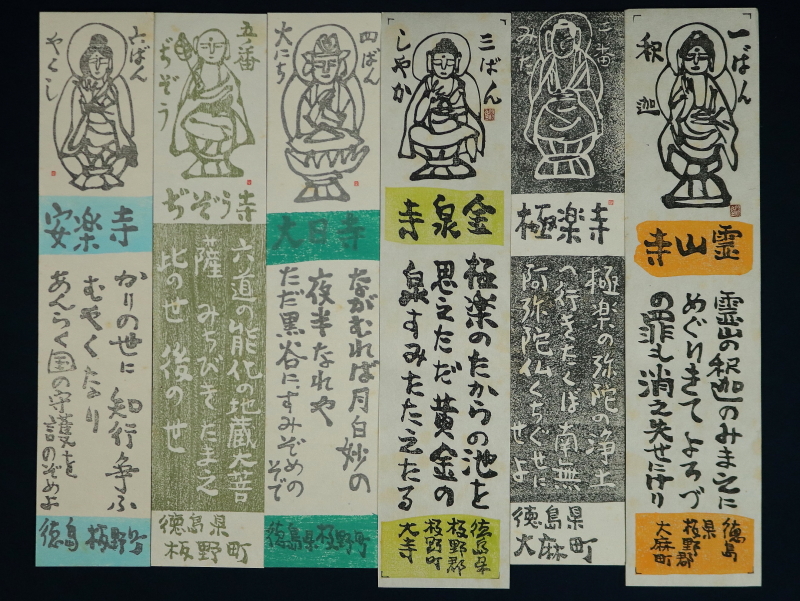 一ばん
釈迦
霊山寺
霊山の釈迦のみまえに
めぐりきてよろづ
の罪も消え失せにけり
徳島
県
板野郡
大麻町
二番
みだ
極楽寺
極楽の弥陀の浄土
へ行きたくば南無
阿弥陀仏くちぐせに
せよ
徳島県
大麻町
三ばん
しやか
金泉寺
極楽のたからの池を
思えただ黄金の
泉すみたたえたる
徳島県
板野郡
板野町
大寺
四ばん
大にち
大日寺
ながむれば月白妙の
夜半なれや
ただ黒谷にすみぞめの
そで
徳島県板野町
五番
ぢぞう
ぢぞう寺
六道の能化の地蔵大菩
薩 みちびきたまえ
此の世 後の世
徳島県
板野町
六ばん
やくし
安楽寺
かりの世に 知行争ふ
むやくなり
あんらく国の守護を
のぞめよ
徳島 板野